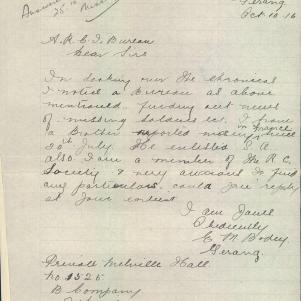 Answered
25th
Terang
Oct 10. 16
A. R. C. I. Bureau
Dear Sirs
In looking over the chronical
I notice a Bureau as above
mentioned. finding out news
of missing soldiers ec. I have
a Brother reported missing since
in France
20th July. He enlisted S. A.
also I am a member of the R.C.
Society & very anxious to find
any particulars. could you reply
at your earliest
I am yours
Obediently
E M Bodey
Terang.
Private Melville Hall
No. 1525
B Company